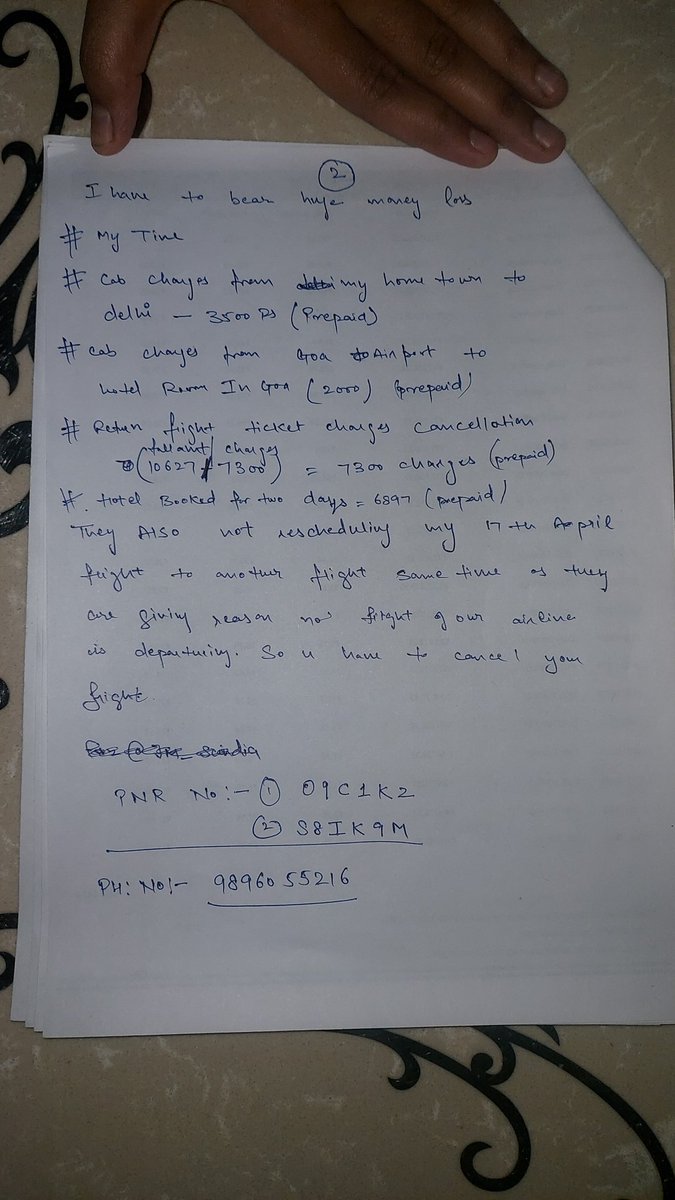 2
I have to bear huge money loss
# My Time
# Cab charges from my home town to
delhi – 3500 Rs (Prepaid)
# Cab charges from Goa Airport to
hotel Room In Goa (2000) (prepaid)
# Retun flight ticket charges cancellation
full amt / charges
(10627 / 7300) = 7300 charges (prepaid)
#. Hotel Booked for two days = 6897 (prepaid)
They Also not rescheduling my 17th April
flight to another flight same time as they
are giving reason no flight of our airline
is departuring. So u have to cancel your
flight.
PNR No:- ① 09C1K2
② S8IK9M
PH: No:- 9896055216